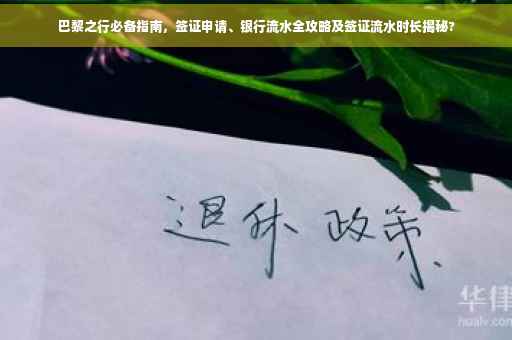 巴黎之行必备指南，签证申请、银行流水全攻略及签证流水时长揭秘?
退休 政策
华律
hualv.com